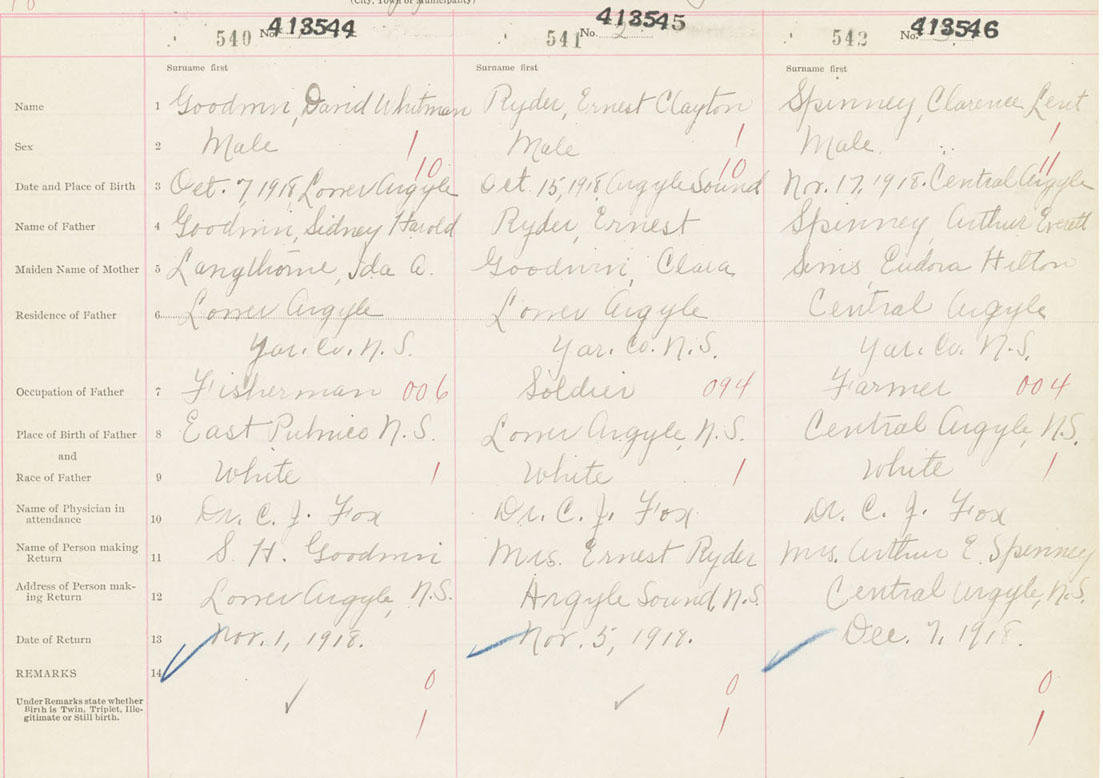 (City, Town or Municipality)
540 No. 413544 541 No. 2 413545 542 No. 413546
Surname first Surname first Surname first
Name 1 Goodwin, David Whitman Ryder, Ernest Clayton Spinney, Clarence Lent
Sex 2 Male 1 Male 1 Male 1
10 10 11
Date and Place of Birth 3 Oct. 7, 1918, Lower Argyle Oct. 15, 1918, Argyle Sound Nov. 17, 1918. Central Argyle
Name of Father 4 Goodwin, Sidney Harold Ryder, Ernest Spinney, Arthur Everett
Maiden Name of Mother 5 Langthorne, Ida A. Goodwin, Clara Sims Eudora Hilton
Residence of Father 6 Lower Argyle Lower Argyle Central Argyle
Yar. Co. N.S. Yar. Co. N.S. Yar. Co. N.S.
Occupation of Father 7 Fisherman 006 Soldier 094 Farmer 004
Place of Birth of Father 8 East Pubnico N.S. Lower Argyle, N.S. Central Argyle, N.S.
and
Race of Father 9 White 1 White 1 White 1
Name of Physician in
attendance 10 Dr. C. J. Fox Dr. C. J. Fox Dr. C. J. Fox
Name of Person making
Return 11 S. H. Goodwin Mrs. Ernest Ryder Mrs. Arthur E. Spinney
Address of Person mak-
ing Return 12 Lower Argyle, N.S. Argyle Sound, N.S. Central Argyle, N.S.
Date of Return 13 Nov. 1, 1918. Nov. 5, 1918. Dec. 7, 1918.
REMARKS 14 0 0 0
Under Remarks state whether
Birth is Twin, Triplet, Ille-
gitimate or Still birth. 1 1 1